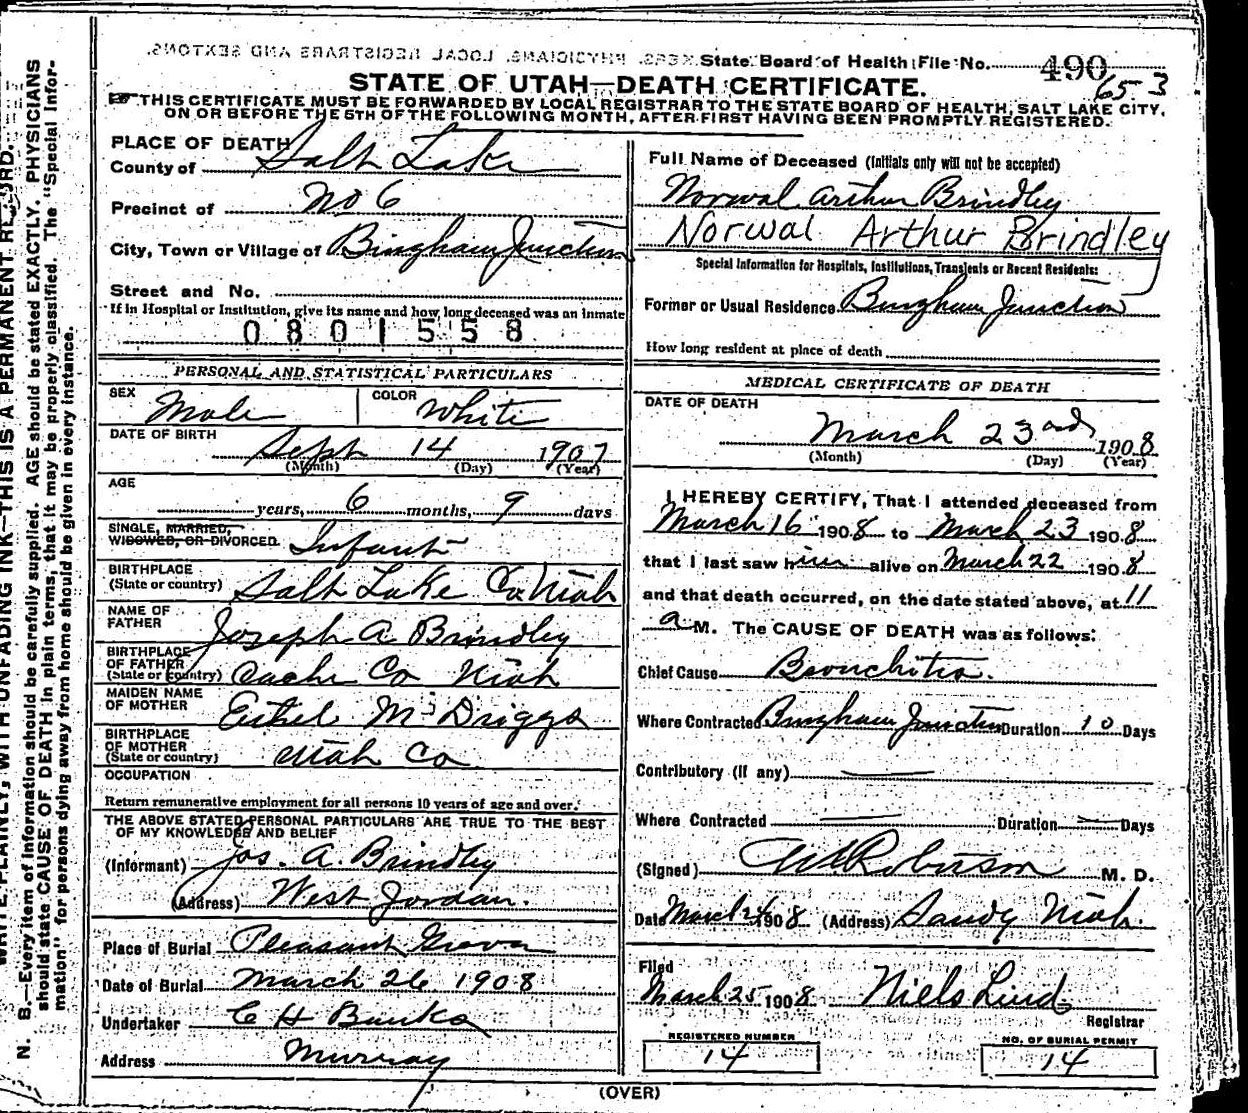 State Board of Health File No. 490
653
STATE OF UTAH—DEATH CERTIFICATE.
THIS CERTIFICATE MUST BE FORWARDED BY LOCAL REGISTRAR TO THE STATE BOARD OF HEALTH, SALT LAKE CITY,
ON OR BEFORE THE 5TH OF THE FOLLOWING MONTH, AFTER FIRST HAVING BEEN PROMPTLY REGISTERED.
PLACE OF DEATH
County of Salt Lake
Precinct of No 6
City, Town or Village of Bingham Junction
Street and No.
If in Hospital or Institution, give its name and how long deceased was an inmate
0801558
PERSONAL AND STATISTICAL PARTICULARS
SEX Male COLOR White
DATE OF BIRTH Sept 14 1907
(Month) (Day) (Year)
AGE
years, 6 months, 9 days
SINGLE, MARRIED,
WIDOWED, OR DIVORCED Infant
BIRTHPLACE
(State or country) Salt Lake Co Utah
NAME OF
FATHER Joseph A Brindley
BIRTHPLACE
OF FATHER
(State or country) Cache Co Utah
MAIDEN NAME
OF MOTHER Ethel M Driggs
BIRTHPLACE
OF MOTHER
(State or country) Utah Co
OCCUPATION
Return remunerative employment for all persons 10 years of age and over.
THE ABOVE STATED PERSONAL PARTICULARS ARE TRUE TO THE BEST
OF MY KNOWLEDGE AND BELIEF
(Informant) Jos. A. Brindley
(Address) West Jordan.
Place of Burial Pleasant Grove
Date of Burial March 26 1908
Undertaker C H Banks
Address Murray
Full Name of Deceased (Initials only will not be accepted)
Norwal Arthur Brindley
Norwal Arthur Brindley
Special Information for Hospitals, Institutions, Transients or Recent Residents:
Former or Usual Residence Bingham Junction
How long resident at place of death
MEDICAL CERTIFICATE OF DEATH
DATE OF DEATH
March 23rd 1908
(Month) (Day) (Year)
I HEREBY CERTIFY, That I attended deceased from
March 16 1908 to March 23 1908
that I last saw him alive on March 22 1908
and that death occurred, on the date stated above, at 11
a M. The CAUSE OF DEATH was as follows:
Chief Cause Bronchitis.
Where Contracted Bingham Junction Duration 10 Days
Contributory (if any)
Where Contracted Duration Days
(Signed) Robinson M. D.
Date March 24 1908 (Address) Sandy Utah.
Filed
March 25 1908 Niels Lind
Registrar
REGISTERED NUMBER
14
NO. OF BURIAL PERMIT
14
(OVER)
WRITE PLAINLY, WITH UNFADING INK—THIS IS A PERMANENT RECORD.
N. B.—Every item of information should be carefully supplied. AGE should be stated EXACTLY. PHYSICIANS
should state CAUSE OF DEATH in plain terms, that it may be properly classified. The "Special Infor-
mation" for persons dying away from home should be given in every instance.